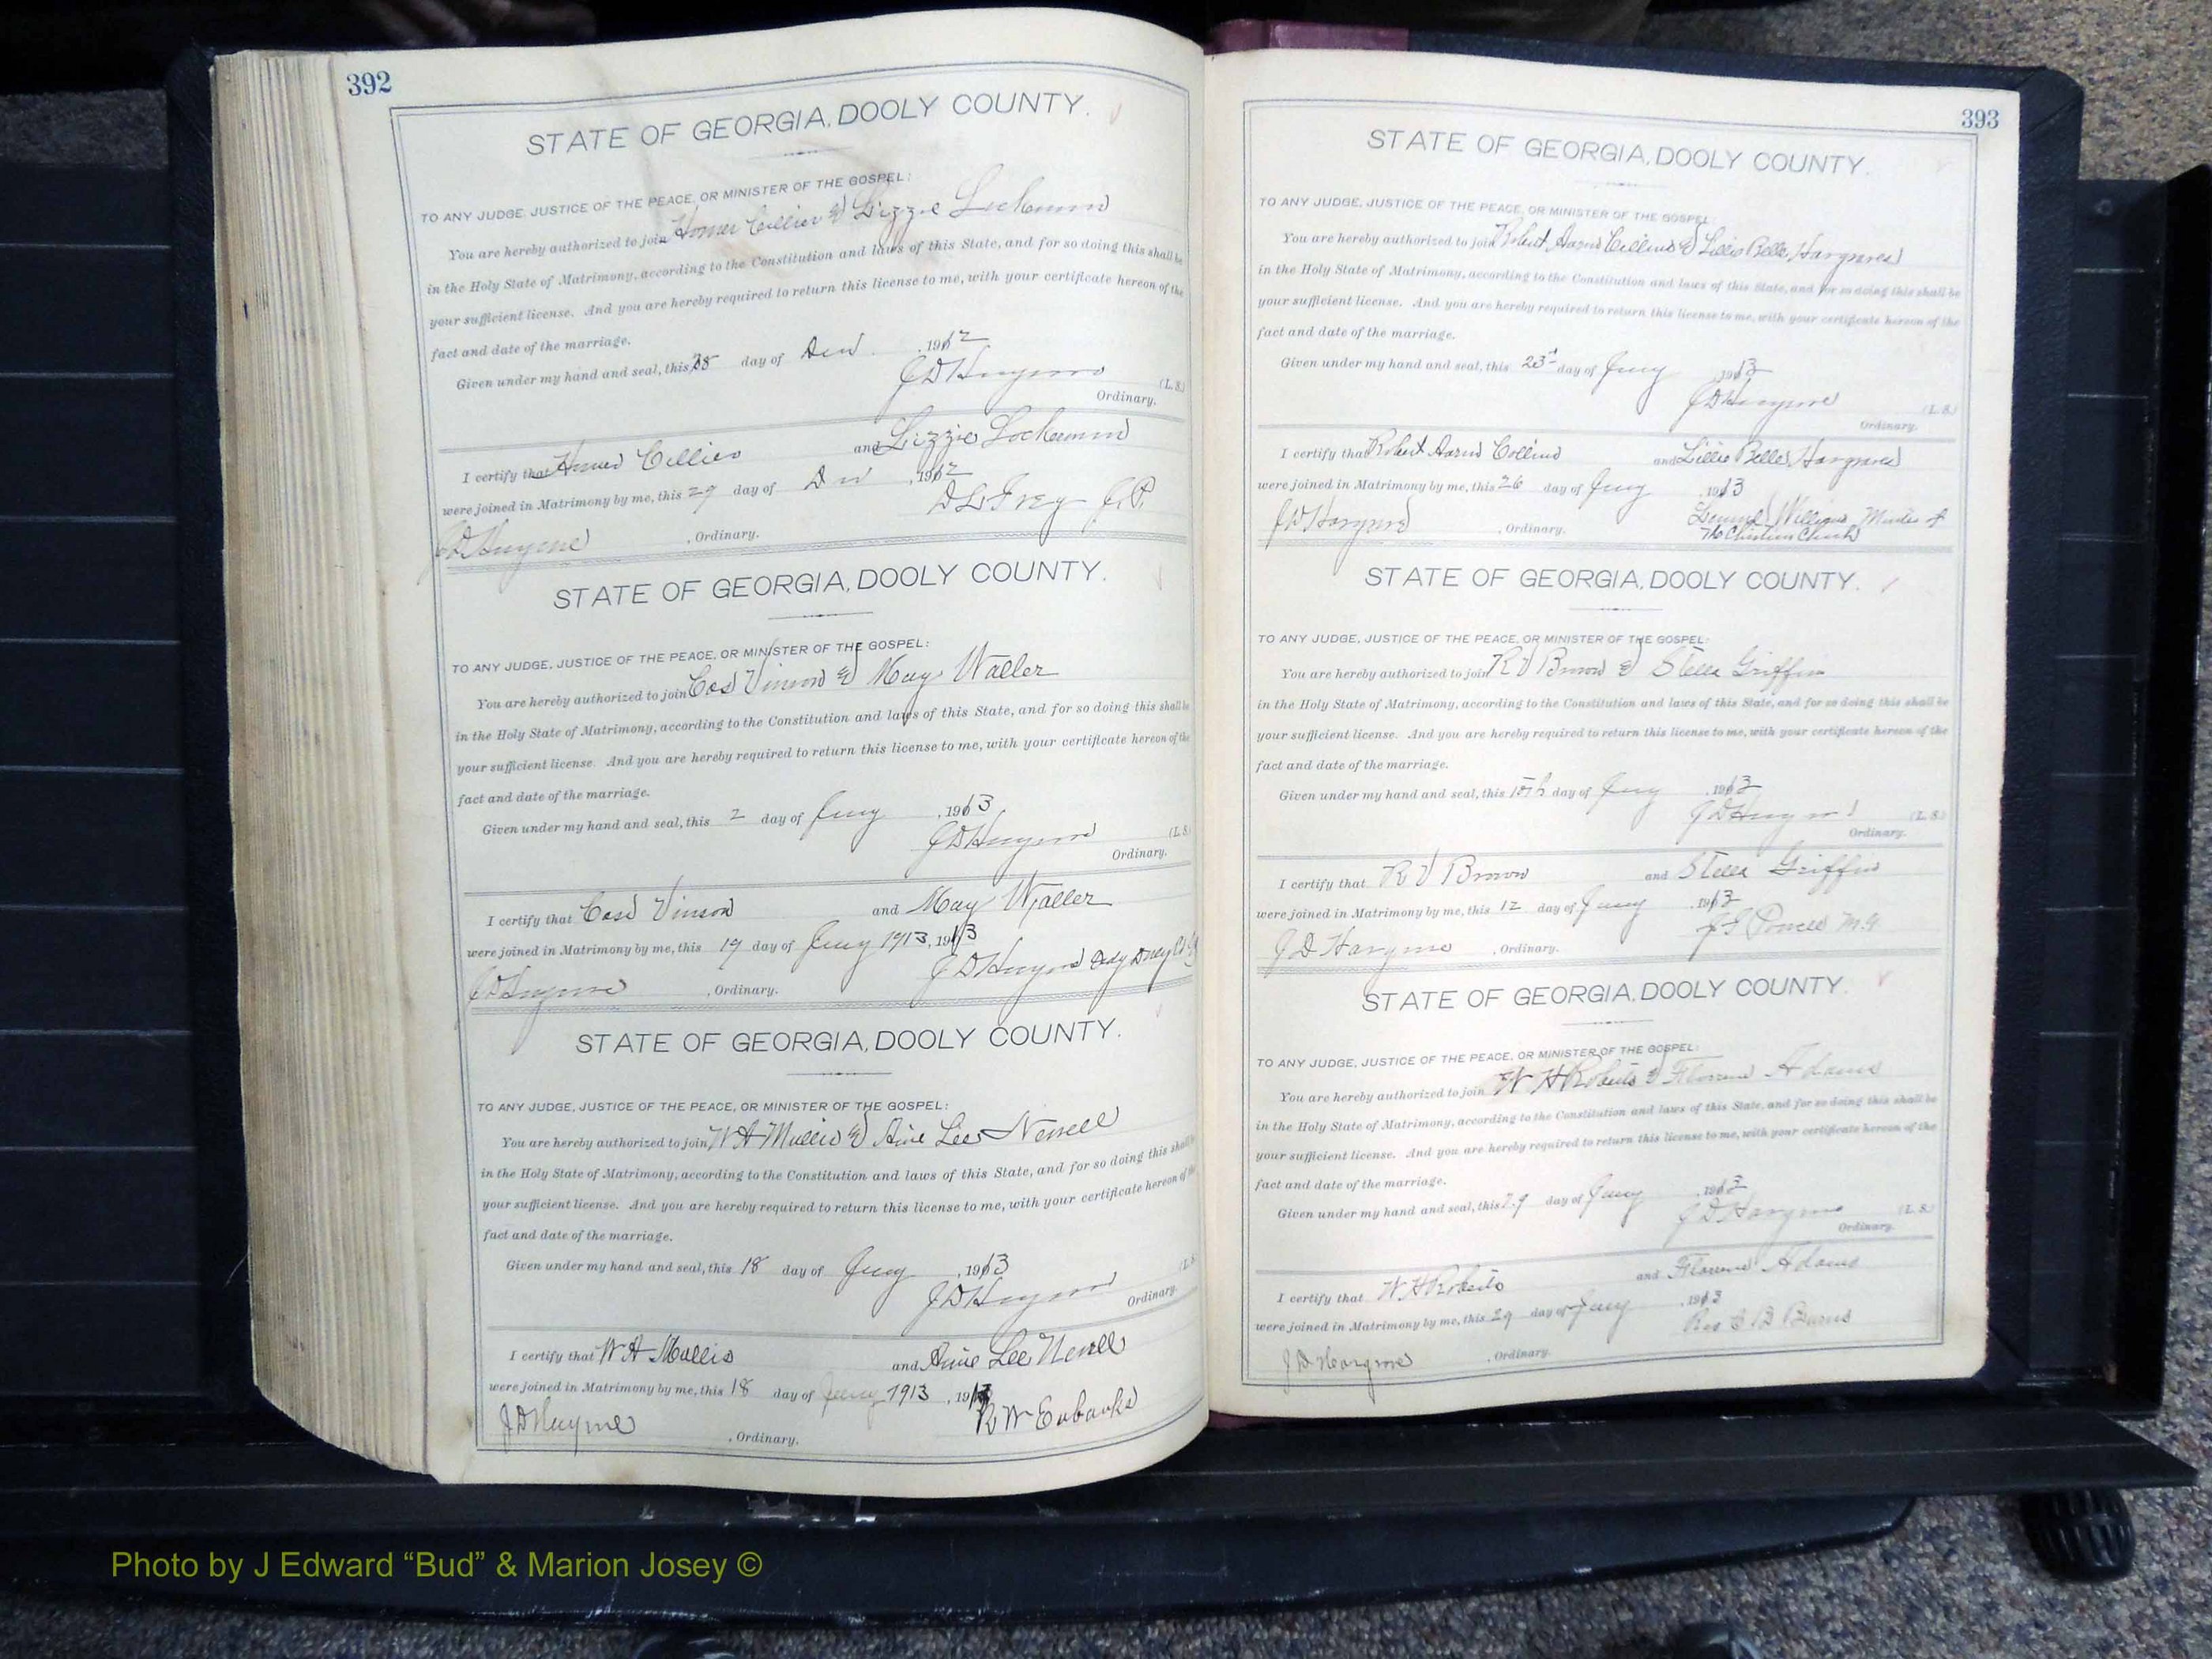 392
STATE OF GEORGIA, DOOLY COUNTY.
TO ANY JUDGE, JUSTICE OF THE PEACE, OR MINISTER OF THE GOSPEL:
You are hereby authorized to join Homer Collier & Lizzie
in the Holy State of Matrimony, according to the Constitution and laws of this State, and for so doing this shall be
your sufficient license. And you are hereby required to return this license to me, with your certificate hereon of the
fact and date of the marriage.
Given under my hand and seal, this 28 day of , 1912
J D Hargrove (L. S.)
Ordinary.
I certify that Homer Collier and Lizzie
were joined in Matrimony by me, this 29 day of , 1912
J. P.
J D Hargrove , Ordinary.
STATE OF GEORGIA, DOOLY COUNTY.
TO ANY JUDGE, JUSTICE OF THE PEACE, OR MINISTER OF THE GOSPEL:
You are hereby authorized to join Vinson & May Waller
in the Holy State of Matrimony, according to the Constitution and laws of this State, and for so doing this shall be
your sufficient license. And you are hereby required to return this license to me, with your certificate hereon of the
fact and date of the marriage.
Given under my hand and seal, this 2 day of Jany , 1913
J D Hargrove (L. S.)
Ordinary.
I certify that Vinson and May Waller
were joined in Matrimony by me, this 19 day of Jany 1913, 1913
J D Hargrove
J D Hargrove , Ordinary.
STATE OF GEORGIA, DOOLY COUNTY.
TO ANY JUDGE, JUSTICE OF THE PEACE, OR MINISTER OF THE GOSPEL:
You are hereby authorized to join W A Mullis & Annie Lee Newell
in the Holy State of Matrimony, according to the Constitution and laws of this State, and for so doing this shall
your sufficient license. And you are hereby required to return this license to me, with your certificate hereon of the
fact and date of the marriage.
Given under my hand and seal, this 18 day of Jany , 1913
J D Hargrove (L. S.
Ordinary.
I certify that W A Mullis and Annie Lee Newell
were joined in Matrimony by me, this 18 day of Jany 1913 , 1913
R W Eubanks
J D Hargrove , Ordinary.
393
STATE OF GEORGIA, DOOLY COUNTY.
TO ANY JUDGE, JUSTICE OF THE PEACE, OR MINISTER OF THE GOSPEL:
You are hereby authorized to join Robert Aaron Collins & Lillie Belle Hargroves
in the Holy State of Matrimony, according to the Constitution and laws of this State, and for so doing this shall be
your sufficient license. And you are hereby required to return this license to me, with your certificate hereon of the
fact and date of the marriage.
Given under my hand and seal, this 23d day of Jany , 1913
J D Hargrove (L. S.)
Ordinary.
I certify that Robert Aaron Collins and Lillie Belle Hargroves
were joined in Matrimony by me, this 26 day of Jany , 1913
Williams Minister of
The Christian Church
J D Hargrove , Ordinary.
STATE OF GEORGIA, DOOLY COUNTY.
TO ANY JUDGE, JUSTICE OF THE PEACE, OR MINISTER OF THE GOSPEL:
You are hereby authorized to join R V Brown & Stella Griffin
in the Holy State of Matrimony, according to the Constitution and laws of this State, and for so doing this shall be
your sufficient license. And you are hereby required to return this license to me, with your certificate hereon of the
fact and date of the marriage.
Given under my hand and seal, this 10th day of Jany , 1913
J D Hargrove (L. S.)
Ordinary.
I certify that R V Brown and Stella Griffin
were joined in Matrimony by me, this 12 day of Jany , 1913
Powell M.G.
J D Hargrove , Ordinary.
STATE OF GEORGIA, DOOLY COUNTY.
TO ANY JUDGE, JUSTICE OF THE PEACE, OR MINISTER OF THE GOSPEL:
You are hereby authorized to join W H Roberts & Florence Adams
in the Holy State of Matrimony, according to the Constitution and laws of this State, and for so doing this shall be
your sufficient license. And you are hereby required to return this license to me, with your certificate hereon of the
fact and date of the marriage.
Given under my hand and seal, this 29 day of Jany , 1913
J D Hargrove (L. S.)
Ordinary.
I certify that W H Roberts and Florence Adams
were joined in Matrimony by me, this 29 day of Jany , 1913
Rev Burns
J D Hargrove , Ordinary.
Photo by J Edward “Bud” & Marion Josey ©